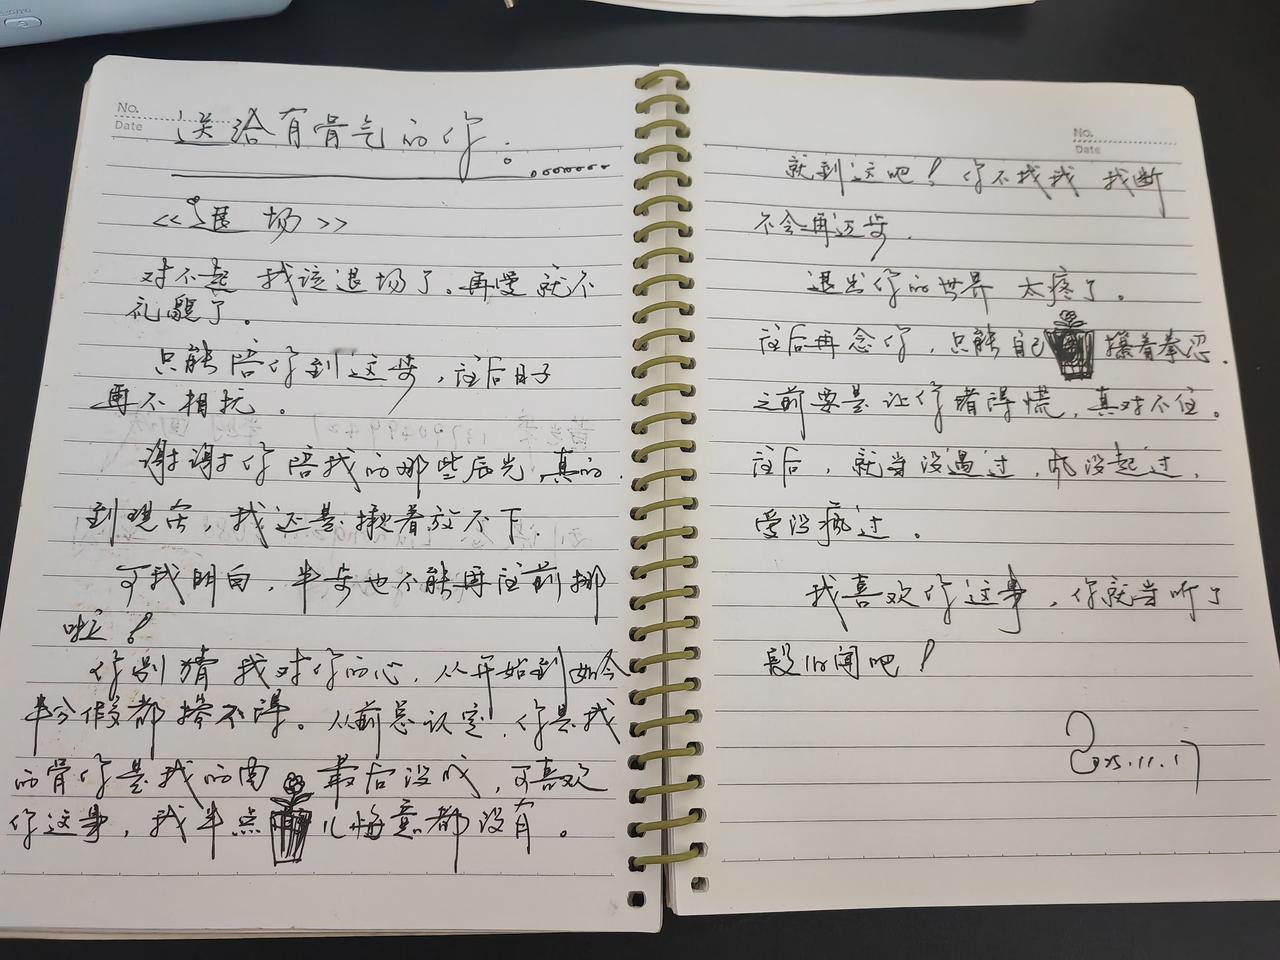 No.
Date
送给有骨气的你：
《退场》
对不起 我该退场了。再爱就不
礼貌了。
只能陪你到这步，往后日子
再不相扰。
谢谢你陪我的那些辰光，真的.
到现实，我还是揪着放不下.
可我明白，半步也不能再往前挪
啦！
你别猜我对你的心，从开始到如今
半分假都掺不得。从前总认定，你是我
的骨你是我的肉 最后没成，可喜欢
你这事，我半点儿悔意都没有。
No.
Date
就到这吧！你不找我 我断
不会再迈步.
退出你的世界 太疼了。
往后再念你，只能自己攥着拳忍.
之前要是让你堵得慌，真对不住。
往后，就当没遇过，风没起过，
爱没疯过。
我喜欢你这事，你就当听了
段旧闻吧！
2025.11.17